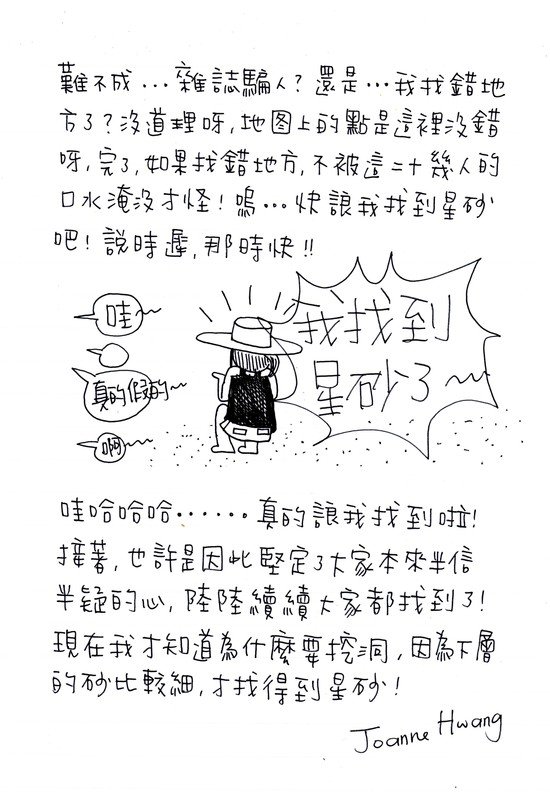 難不成…雜誌騙人?還是…我找錯地
方了?沒道理呀,地图上的點是這裡沒錯
呀,完了,如果找錯地方,不被這二十幾人的
口水淹沒才怪!嗚…快讓我找到星砂
吧!說時遲,那時快!!
哇~
我找到
星砂了~
真的假的~
啊~
哇哈哈哈……真的讓我找到啦!
接著,也許是因此堅定了大家本來半信
半疑的心,陸陸續續大家都找到了!
現在我才知道為什麼要挖洞,因為下層
的砂比較細,才找得到星砂!
Joanne Hwang